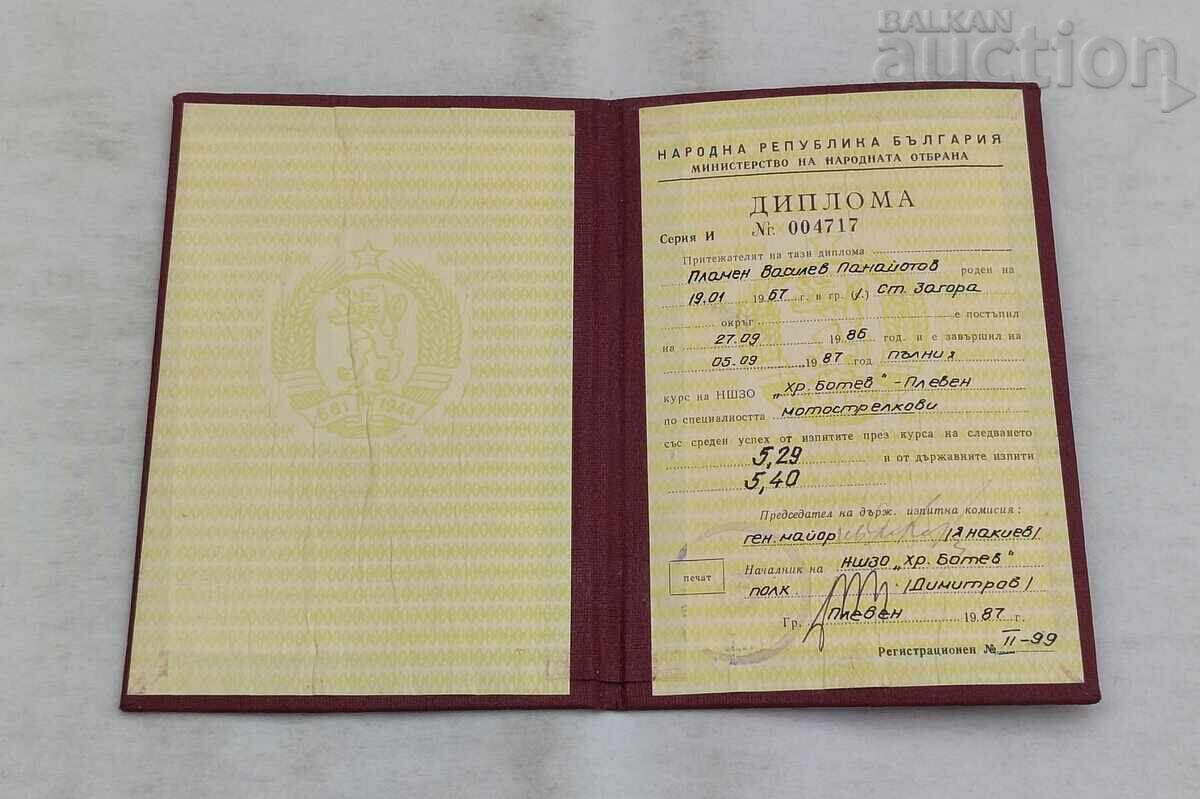 BALKAN
auction
681 1944
НАРОДНА РЕПУБЛИКА БЪЛГАРИЯ
МИНИСТЕРСТВО НА НАРОДНАТА ОТБРАНА
ДИПЛОМА
Серия И № 004717
Притежателят на тази диплома
Пламен Василев Панайотов роден на
19.01 1967 г. в гр. (с.) Ст. Загора
окръг е постъпил
на 27.09 1986 год. и е завършил на
05.09 1987 год. пълния
курс на НШЗО „Хр. Ботев" - Плевен
по специалността мотострелкови
със среден успех от изпитите през курса на следването
5,29 и от държавните изпити
5,40
Председател на държ. изпитна комисия:
ген. майор /Янакиев/
Началник на НШЗО „Хр. Ботев"
печат
полк. /Димитров/
Гр. Плевен 1987 г.
Регистрационен № II-99